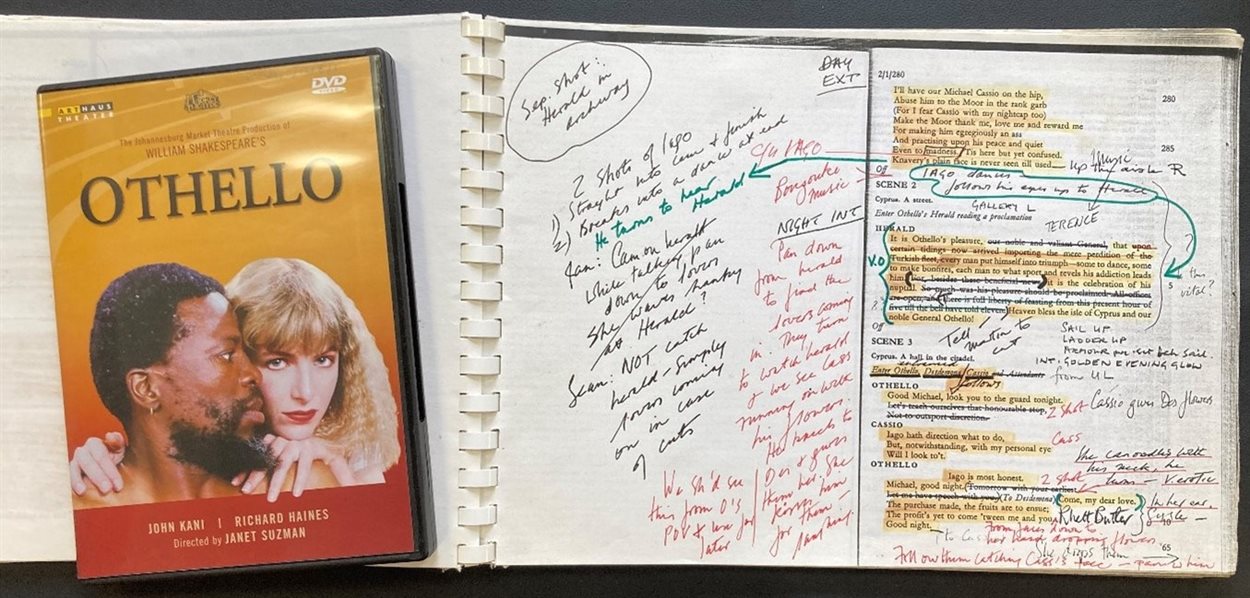 ARTHAUS
THEATER
DVD
VIDEO
The Johannesburg Market Theatre Production of
WILLIAM SHAKESPEARE'S
OTHELLO
JOHN KANI | RICHARD HAINES
Directed by JANET SUZMAN
Sep. shot:
Herald in
archway
DAY
EXT
2 shots of Iago
1) Straight into cam & finish
2) Breaks into a dance at end
He turns to hear
Herald
C/U IAGO
Bouzouki
music
NIGHT INT
4an: Cam on herald
while talking pan
down to lovers
She waves hanky
at Herald?
Sean: NOT catch
herald - simply
lovers coming
on in case
of cuts
Pan down
from herald
to find the
lovers coming
in. They turn
to watch herald
& we see Cass
running on with
his flowers.
He kneels to
Des & gives
them her. She
kisses him
for them -
We sh'd see
this from O's
POV & use for
later
2/1/280
I'll have our Michael Cassio on the hip,
280
Abuse him to the Moor in the rank garb
(For I fear Cassio with my nightcap too)
Make the Moor thank me, love me and reward me
For making him egregiously an ass
And practising upon his peace and quiet
285
Even to madness. 'Tis here but yet confused.
Knavery's plain face is never seen till used.
Music
up the aisle R
Off
IAGO dances
follows his eyes up to Herald
SCENE 2
Cyprus. A street.
GALLERY L
Enter Othello's Herald reading a proclamation
TERENCE
HERALD
V.O
It is Othello's pleasure, our noble and valiant General, that upon
certain tidings now arrived importing the mere perdition of the
Turkish fleet, every man put himself into triumph: some to dance, some
to make bonfires, each man to what sport and revels his addiction leads
him; for, besides these beneficial news, it is the celebration of his
5
nuptial. So much was his pleasure should be proclaimed. All offices
are open, and there is full liberty of feasting from this present hour of
five till the bell have told eleven. Heaven bless the isle of Cyprus and our
noble General Othello!
?
is this
vital?
Off
Tell
Martin to
cut
SCENE 3
Cyprus. A hall in the citadel.
SAIL UP
LADDER UP
INT. GOLDEN EVENING GLOW
from UL
Enter Othello, Desdemona, Cassio and Attendants
follows
OTHELLO
Good Michael, look you to the guard tonight.
Let's teach ourselves that honourable stop,
Not to outsport discretion.
2 shot
Cassio gives Des flowers
CASSIO
Iago hath direction what to do,
But, notwithstanding, with my personal eye
Will I look to't.
Cass
OTHELLO
Iago is most honest.
She canoodles with
his neck, he
turns - V. erotic
Michael, good night. Tomorrow with your earliest
2 shot
Let me have speech with you. (To Desdemona) Come, my dear love,
In her ear.
The purchase made, the fruits are to ensue;
The profit's yet to come 'tween me and you.
Rhett Butler
10
Good night.
From faces down to
her hand dropping flowers.
She drops them
Follow them catching Cass's face - pan w him
'65